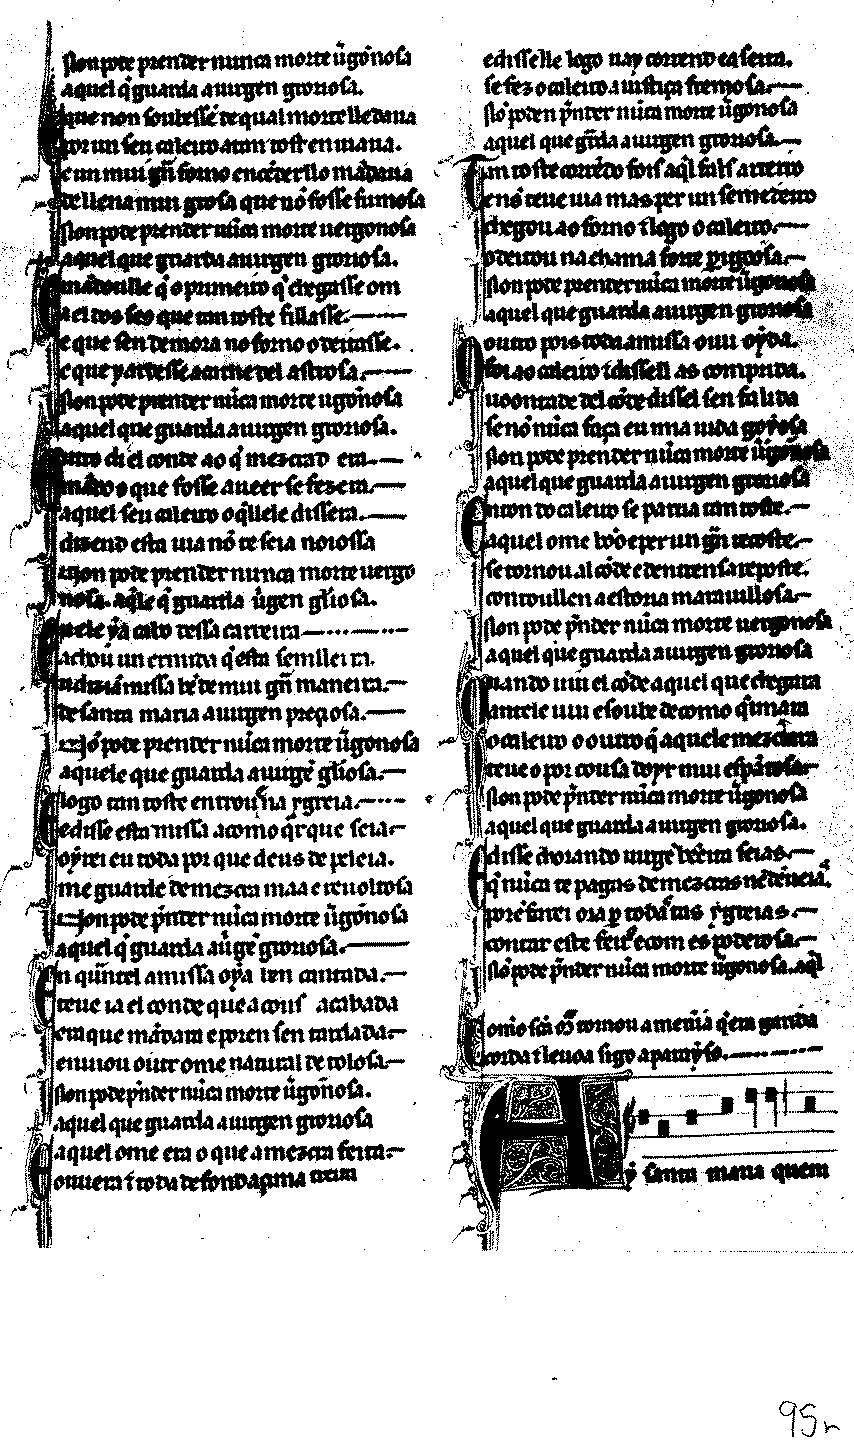 Non pode prender nunca morte ũgõnosa
aquel q̃ guarda a uirgen groriosa.
Que non soubesse de qual morte lle daua
por un seu caleiro atan tost enuiaua.
e un mui gñ forno encẽder llo mãdaua
de llena mui grosa que nõ fosse fumosa
Non pode prender nũca morte uergonosa
aquel que guarda a uirgen groriosa.
mãdoulle q̃ o primeiro q̃ chegasse om
a el dos seos que tan toste fillasse.
e que sen demora no forno o deitasse.
e que y ardesse a carne del astrosa.
Non pode prender nũca morte ũgõnosa
aquel que guarda a uirgen groriosa.
outro di el conde ao q̃ mezcrad era
mãdoo que fosse a ueer se fezera.
aquel seu caleiro o q̃ lle el dissera.
dizend esta uia nõ te seia noiossa
Non pode prender nunca morte uergo
nosa. aq̃le q̃ guarda ũgen gl̃iosa.
E u ele ya cabo dessa carreira
achou un ermida q̃ esta senlleira.
u dizian missa bẽ de mui gñ maneira.
de santa maria a uirgen preçiosa.
Nõ pode prender nũca morte ũgonosa
aquele que guarda a uirgẽ gl̃iosa.
E logo tan toste entrou na ygreia.
e disse esta missa a como q̃r que seia
oyrei eu toda por que deus de peleia.
me guarde de mezcra maa e reuoltosa
Non pode p̃nder nũca morte ũgõnosa
aquel q̃ guarda a uĩgẽ groriosa.
En quãt el a missa oya ben cantada.
teue ia el conde que a cous acabada
era que mãdara e poren sen tardada.
enuiou outr ome natural de tolosa.
Non pode p̃nder nũca morte ũgonosa.
aquel que guarda a uirgen groriosa
E aquel ome era o que a mezcra feita
ouuera e toda de fond a çima treita
e disselle logo uay correnđ e aseita.
se fez o caleiro a iustiça fremosa.
Nõ podẽ p̃nder nũca morte ũgonosa
aquel que g̃rda a uirgen groriosa.
Tan toste corrẽdo foiss aq̃l fals arteiro
e nõ teue uia mas per un semedeiro
chegou ao forno e logo o caleiro.
o deitou na chama forte perigoosa.
Non pode prender nũca morte ũgonosa
aquel que guarda a uirgen groriosa
O outro pois toda a missa ouu oyda.
foi ao caleiro e dissell as comprida.
uoontade del cõde dissel sen falida
se nõ nũca faça eu mia uida goyosa
Non pode prender nũca morte ũigonosa
aquel que guarda a uirgen groriosa
Enton do caleiro se partia tan toste.
aquel ome bõo e per un gñ recoste.
se tornou. al cõde e dentr en sa reposte.
contoull en a estoria marauillosa.
Non pode p̃nder nũca morte uergonosa
aquel que guarda a uirgen groriosa
Quando uiu el cõde aquel que chegara
antele uiu e soube de como q̃imara
o caleiro o outro q̃ aquele mezcrara
teue o por cousa doyr mui espãtosa
Non pode p̃nder nũca morte ũgonosa
aquel que guarda a uirgen groriosa.
E disse chorando uirgẽ bẽeita seias.
q̃ nũca te pagas de mezcras nẽ dẽueia.
porẽ farei oia p todalas ygreias.
contar este feit e com es poderosa.
Nõ pode p̃nder nũca morte ũgonosa. aq̃l
Como scã mã tornou a menĩa q̃ era garrida
corda e leuoa sigo a parayso.
Ay santa maria quem
95r